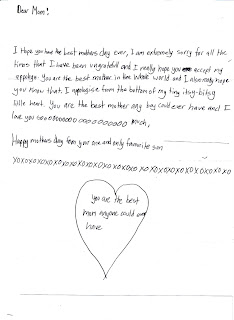 Dear Mom!
I Hope you have the best mothers day ever, I am extremely sorry for all the
times that I have been ungratefull and I really hope you accept my
appoligy. You are the best mother in the whole world and I also really hope
you know that I apologise from the bottom of my tiny itsy-bitsy
little heart. You are the best mother any boy could ever have and I
love you sooooooooooooooooooooo much,
Happy mothers day from your one and only favorite son
XOXOXOXOXOXOXOXOXOXOXOXOXOXOXOXOXOXOXOXOXOXO
you are the best
mom anyone could ever
have